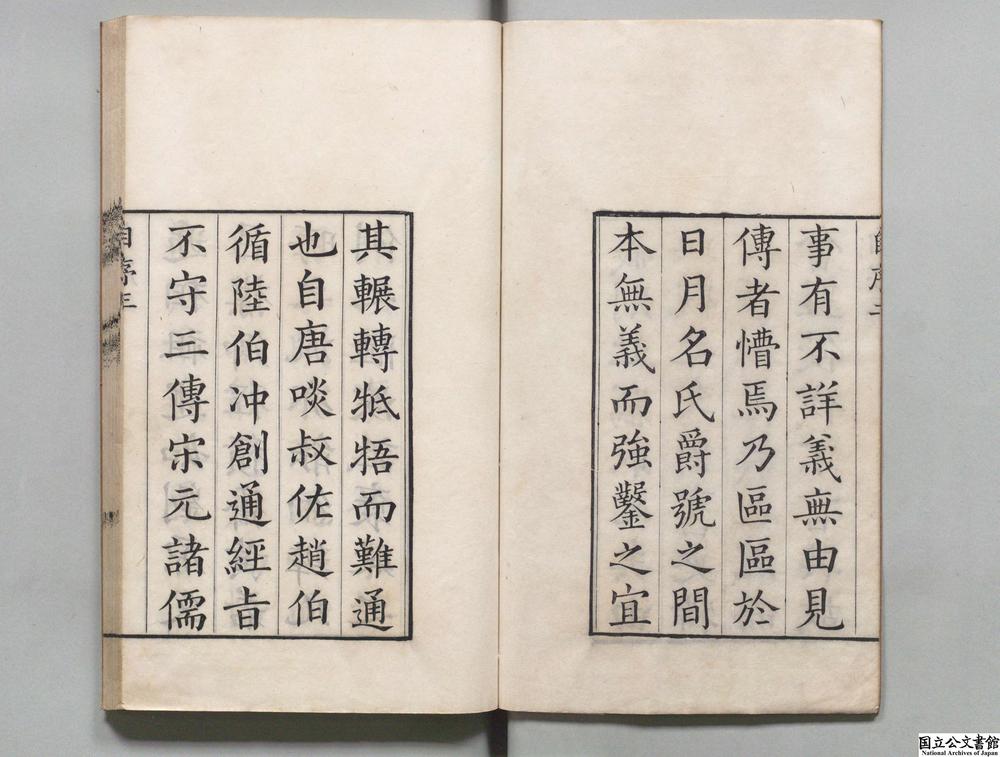 事有不詳義無由見
傳者懵焉乃區區於
日月名氏爵號之間
本無義而強鑿之宜
其輾轉牴牾而難通
也自唐啖叔佐趙伯
循陸伯冲創通經旨
不守三傳宋元諸儒
自序三
国立公文書館
National Archives of Japan